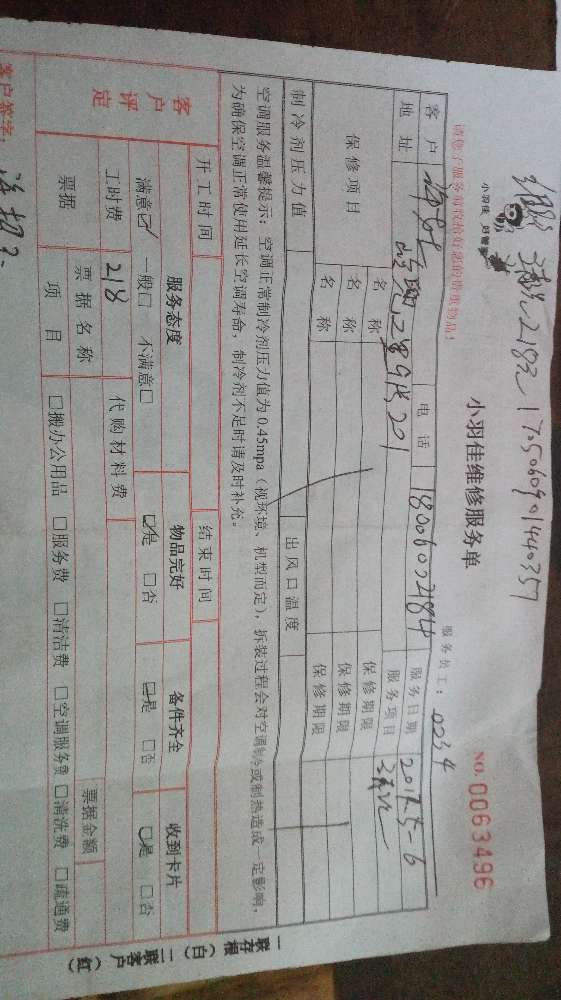 清洗218元 1705060901440357
小羽佳 好管家
小羽佳维修服务单
NO.0063496
请您予服务前收拾好您的贵重物品!
服务员工: 0234
客户 电话 18006022184 服务日期 2017-5-6
地址 201 服务项目 清洗
保修项目 名称 保修期限
名称 保修期限
名称 保修期限
制冷剂压力值 出风口温度
空调服务温馨提示: 空调正常制冷剂压力值为0.45mpa (视环境、机型而定), 拆装过程会对空调制冷或制热造成一定影响,
为确保空调正常使用延长空调寿命, 制冷剂不足时请及时补充。
开工时间 结束时间
客户评定 服务态度 物品完好 备件齐全 收到卡片
满意☑ 一般□ 不满意□ ☑是 □否 ☑是 □否 ☑是 □否
工时费 218 代购材料费
票据 票据名称 票据金额
项目 □搬办公用品 □服务费 □清洁费 □空调服务费 □清洗费 □疏通费
客户签字:
一联存根(白) 二联客户(红)